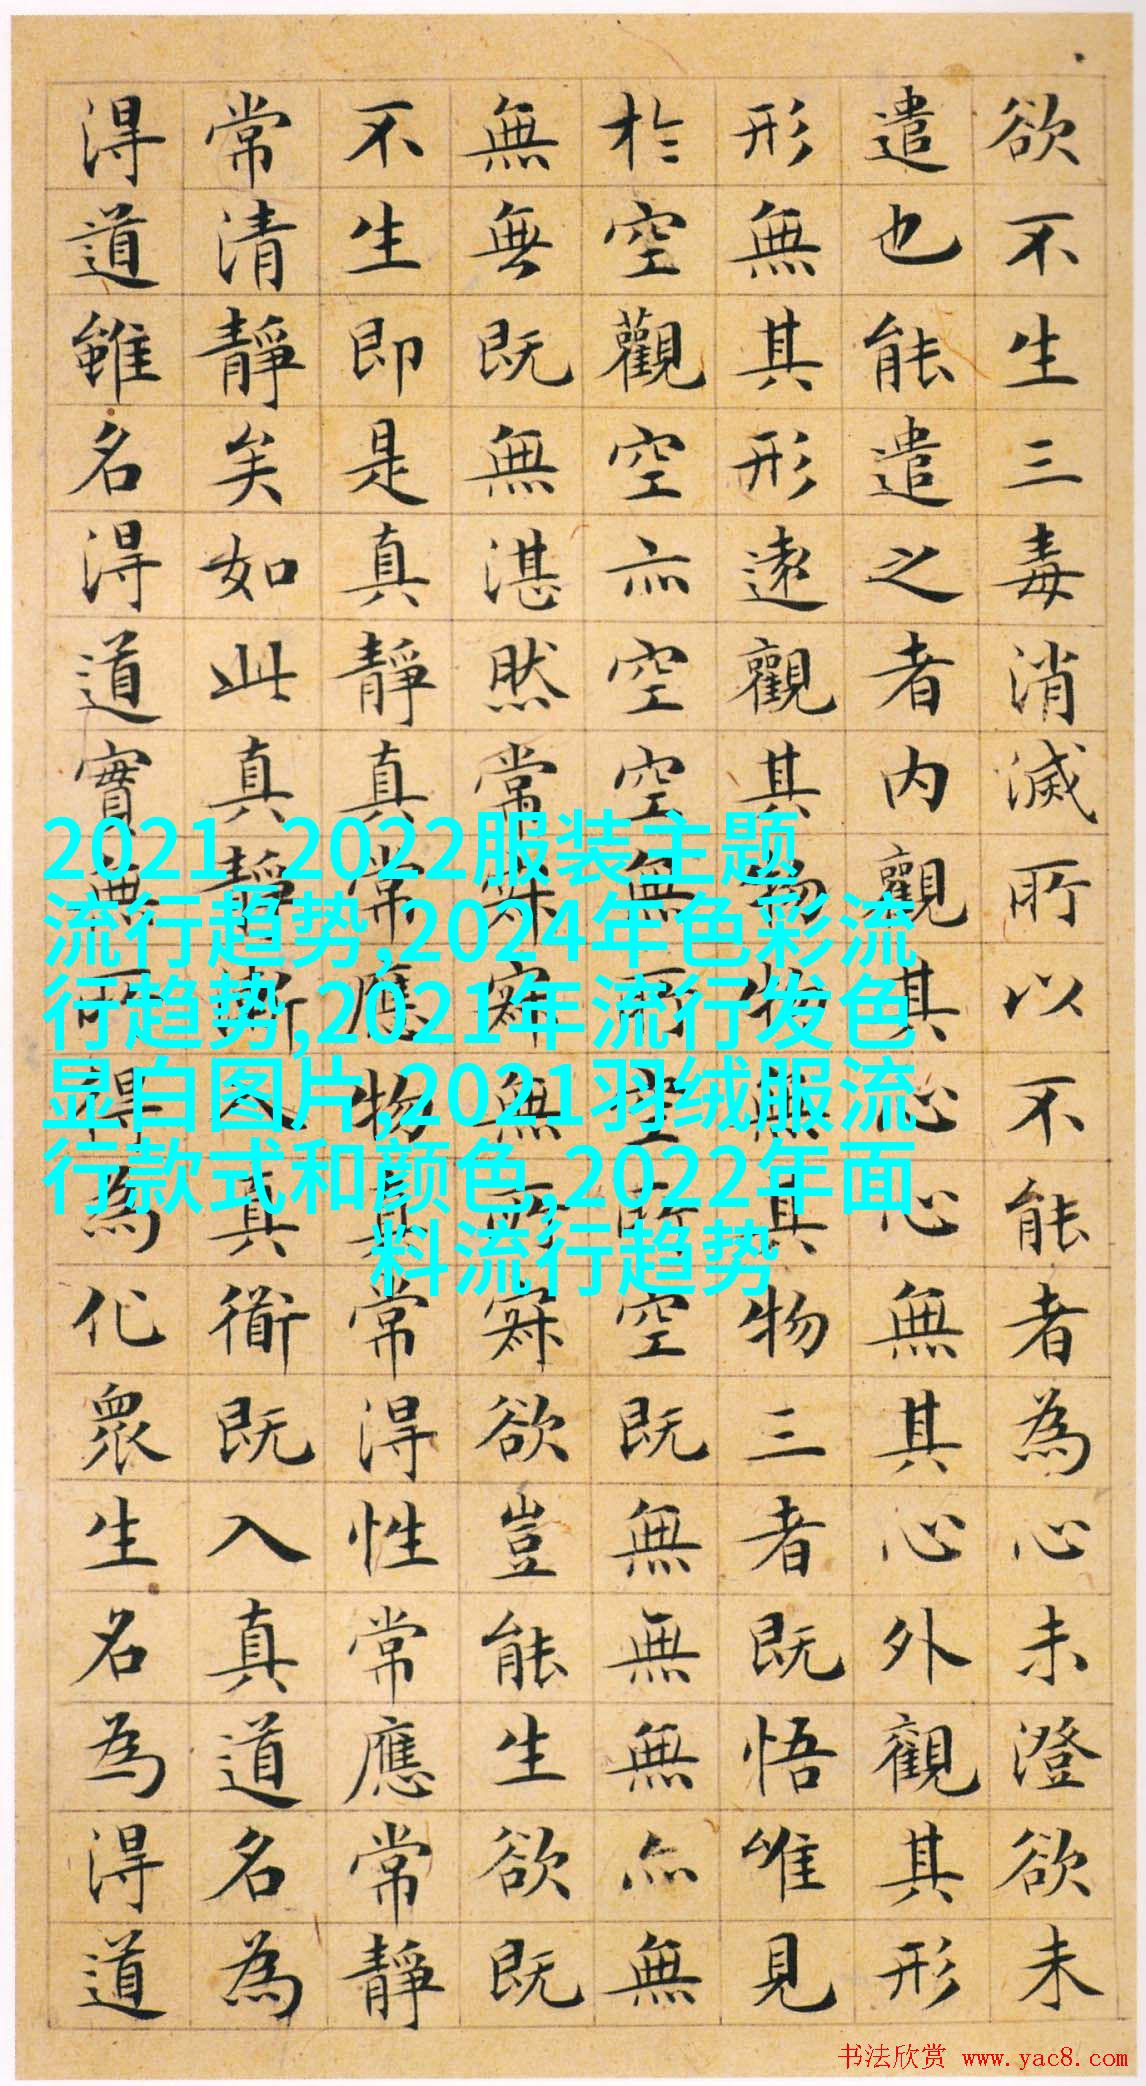 欲不生三毒消滅所以不能者為心未澄欲未
遣也能遣之者内觀其心心無其心外觀其形
形無其形遠觀其物物無其物三者既悟唯見
於空觀空亦空空無所空所空既無無無亦無
無無既無湛然常寂寂無所寂欲豈能生欲既
不生即是真靜真常應物真常得性常應常靜
常清靜矣如此真靜漸入真道既入真道名為
得道雖名得道實無所得為化眾生名為得道
2021 2022服装主题
流行趋势,2024年色彩流
行趋势,2021年流行发色
显白图片,2021羽绒服流
行款式和颜色,2022年面
料流行趋势
书法欣赏 www.yac8.com